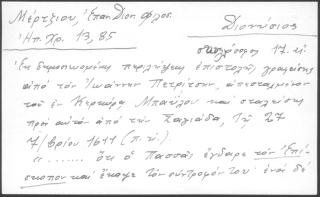 Μέρτζιου, Ἐπαν. Διον. Φιλοσ.
Ἠπ. Χρ. 13, 85
Διονύσιος
σκυλόσοφος 17. αἰ
Ἐκ δημοσιευομένης περιλήψεως ἐπιστολῆς γραφείσης
ἀπὸ τὸν Ἰωάννην Πετρίτσην, ἀπεσταλμένον
τοῦ ἐν Κερκύρᾳ Μπαΐλου καὶ σταλείσης
πρὸς αὐτὸν ἀπὸ τὴν Σαγιάδα, τῇ 27
7/βρίου 1611 (π. ἡ.)
"...... ὅτι ὁ Πασσᾶς ἔγδαρε τὸν Ἐπί-
σκοπον καὶ ἔκαψε τὸν σύντροφόν του· ἐνῷ δὲ